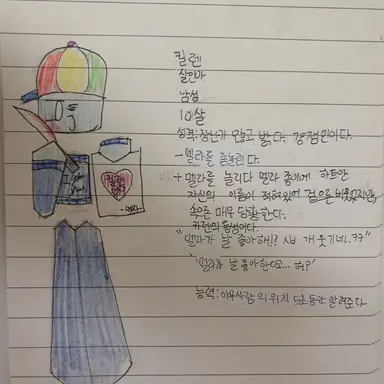 킬렌
살인마
남성
10살
성격: 장난기 많고 밝다. 강점인이다.
- 멜라를 좀놀린다.
+ 멜라를 놀리다 멜라 종이에 하트안
자신의 이름이 적혀있어 겉으론 비웃었지만
속으론 매우 당황한다.
카렌의 동생이다.
"멜라가 날 좋아해!? 시bㅏ 개웃기네.ㅋㅋ"
'멜라가 날 좋아한다고... 허?'
능력: 아무사람의 위치 5초동안 알려준다.
킬렌